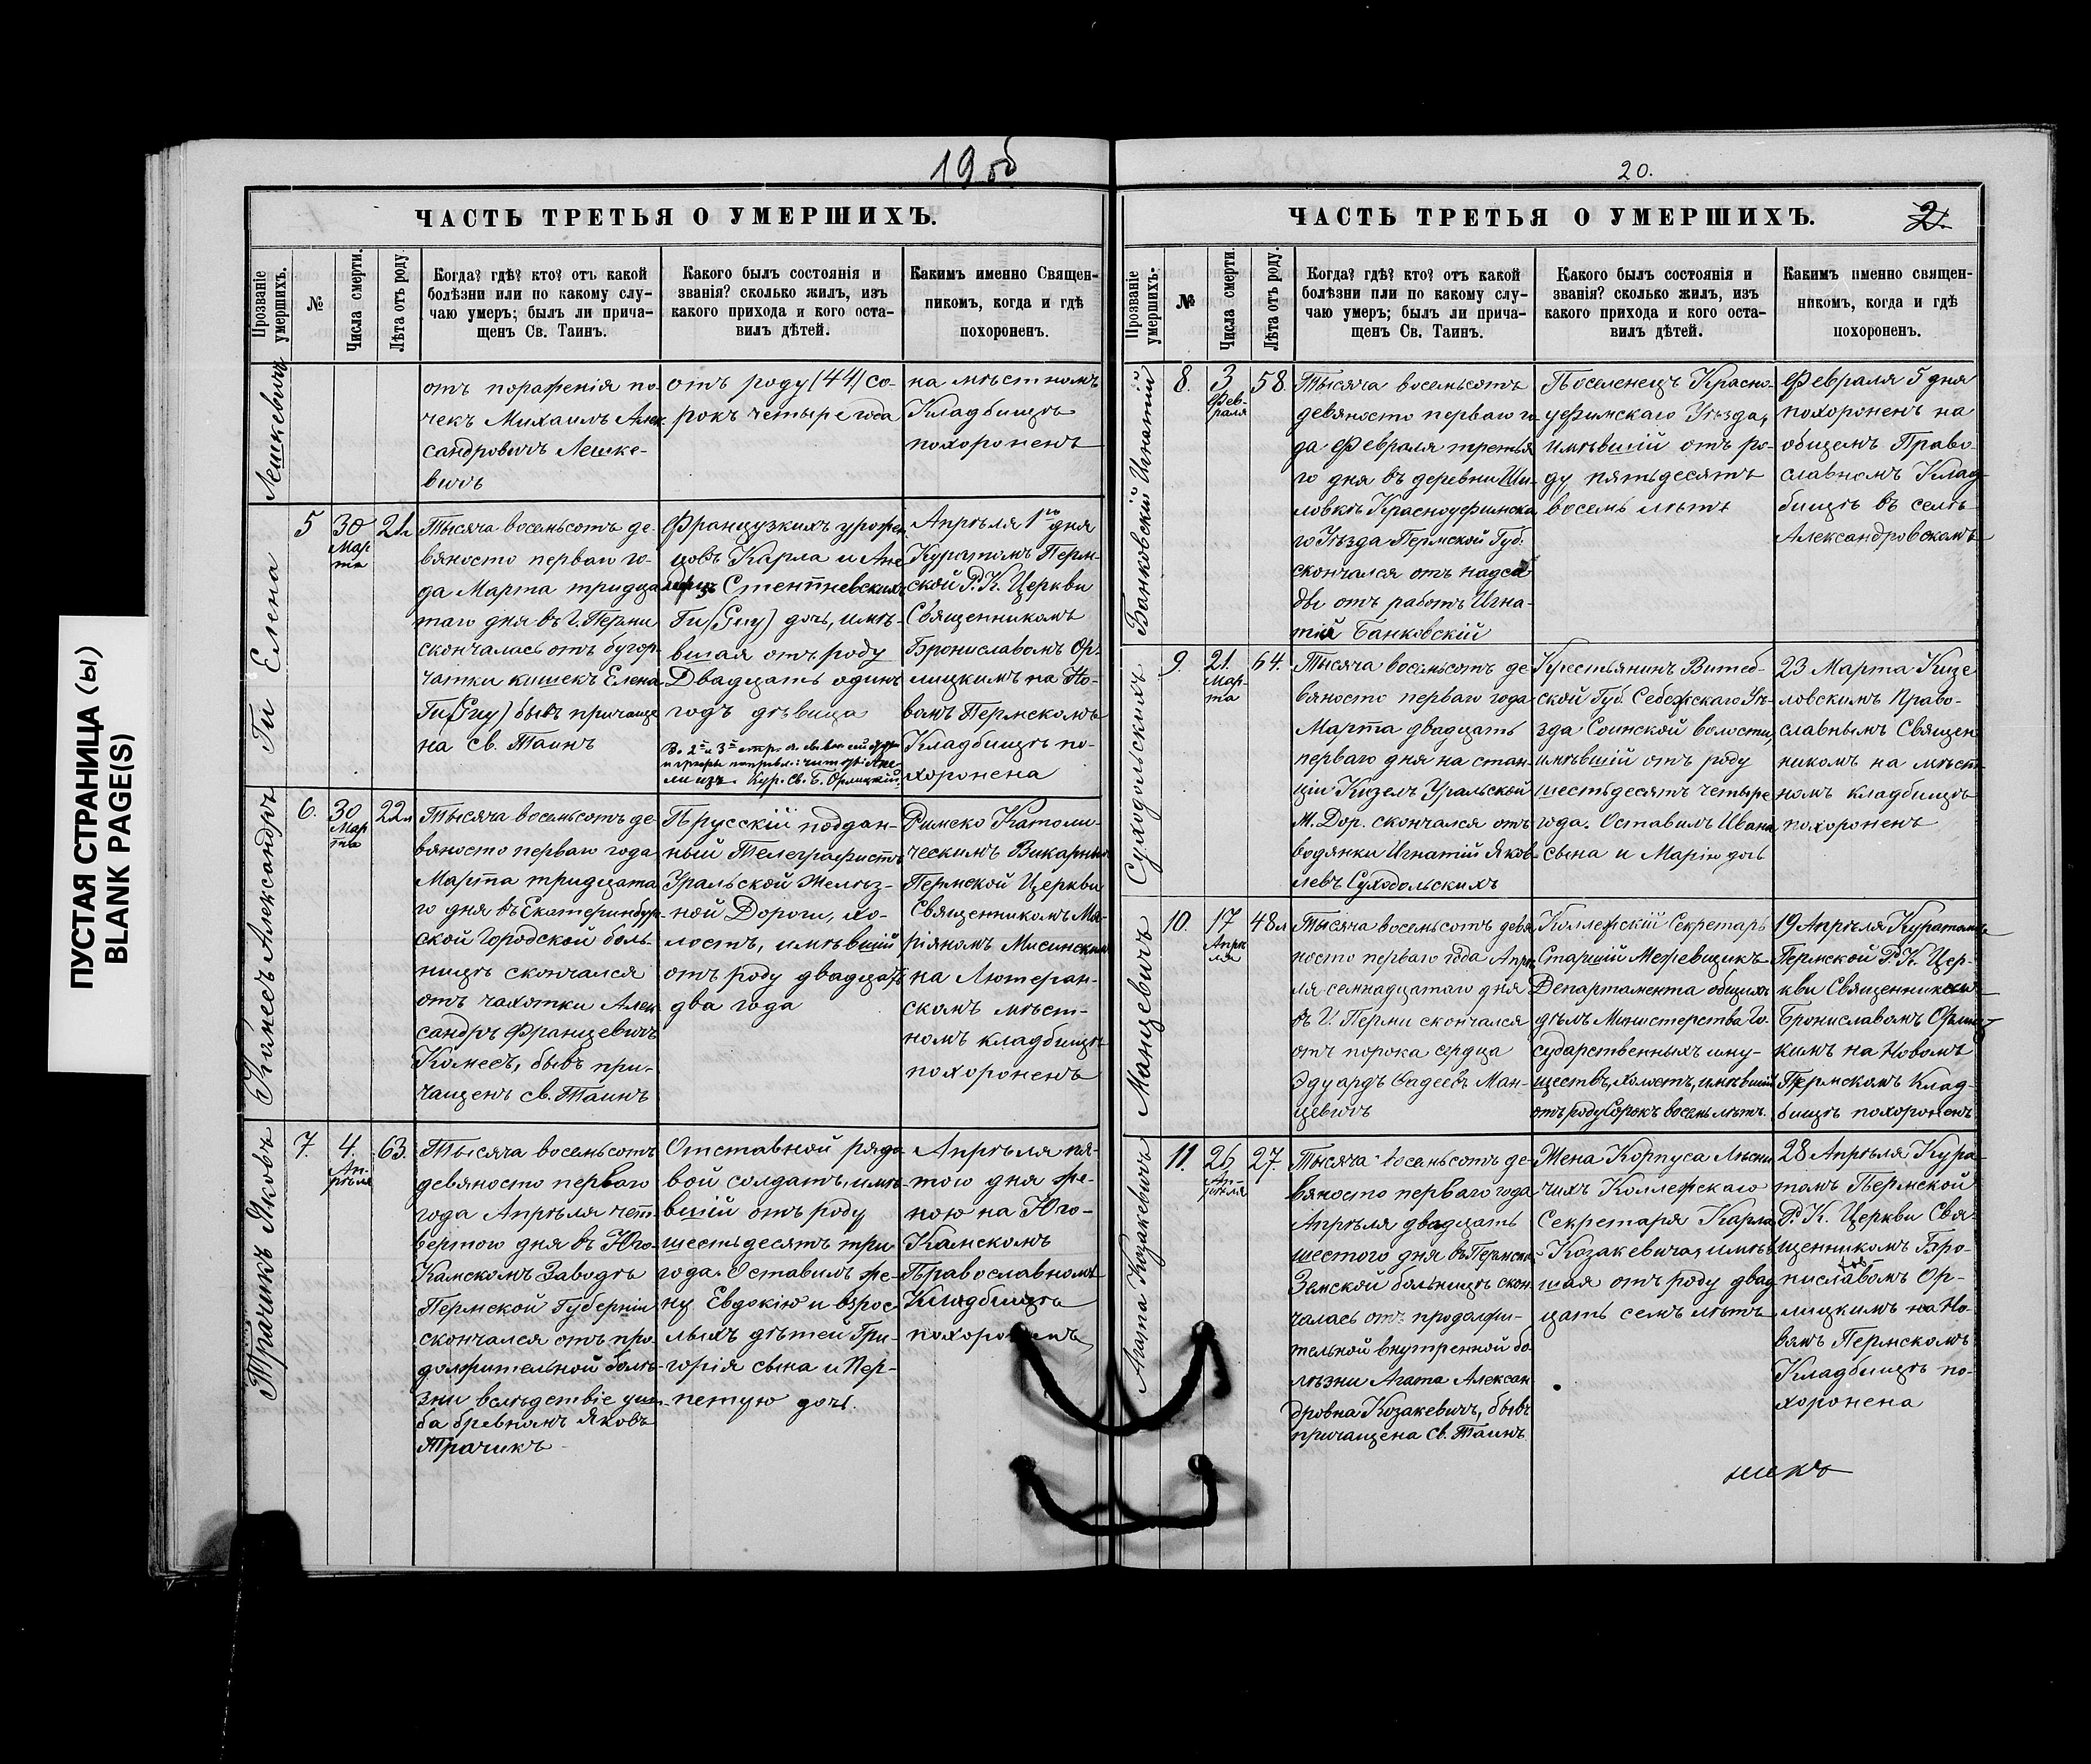 ПУСТАЯ СТРАНИЦА (Ы)
BLANK PAGE(S)
19 об
ЧАСТЬ ТРЕТЬЯ О УМЕРШИХЪ.
Прозваніе умершихъ.
№
Числа смерти.
Лѣта отъ роду.
Когда? гдѣ? кто? отъ какой
болѣзни или по какому слу-
чаю умеръ; былъ ли прича-
щенъ Св. Таинъ.
Какого былъ состоянія и
званія? сколько жилъ, изъ
какого прихода и кого оста-
вилъ дѣтей.
Какимъ именно Священ-
никомъ, когда и гдѣ
похороненъ.
Лешкевичъ
отъ пораженія по-
чекъ Михаилъ Алек
сандровичъ Лешке-
вичъ
отъ роду (44) со-
рокъ четыре года
на мѣстномъ
Кладбищѣ
похороненъ
Ги Елена
5
30
Мар
та
21л
Тысяча восемьсотъ де-
вяносто перваго го-
да Марта тридца
таго дня въ Г. Перми
скончалась отъ бугор-
чатки кишекъ Елена
Ги (Guy) бывъ причаще
на св. Таинъ
Французкихъ урожен
цовъ Карла и Ане
Ги (Guy) дочь, имѣ-
вшая отъ роду
Двадцать одинъ
годъ дѣвица
Кур. Св. Б. Орлицкій
Апрѣля 1го дня
Куратомъ Перм-
ской Р. К. Церкви
Священникомъ
Брониславомъ Ор-
лицкимъ на Но-
вомъ Пермскомъ
Кладбищѣ по-
хоронена
Комесъ Александръ
6.
30
Мар
та
22л
Тысяча восемьсотъ де-
вяносто перваго года
Марта тридцата
го дня въ Екатеринбур-
ской Городской боль-
ницѣ скончался
отъ чахотки Алек
сандръ Францевичъ
Комесъ, бывъ при-
чащенъ св. Таинъ
Прусскій поддан-
ный Телеграфистъ
Уральской Желѣз-
ной Дороги, хо-
лостъ, имѣвшій
отъ роду двадцать
два года
Римско Католи-
ческимъ Викарнымъ
Пермской Церкви
Священникомъ Ма-
ріяномъ Мисинскимъ
на Лютеран-
скомъ мѣст-
номъ кладбищѣ
похороненъ
Трачикъ Яковъ
7.
4.
Ап-
рѣля
63.
Тысяча восемьсотъ
девяносто перваго
года Апрѣля чет-
вертого дня въ Юго-
Камскомъ Заводѣ
Пермской Губерніи
скончался отъ про
должительной болѣ-
зни вслѣдствіе уши-
ба бревномъ Яковъ
Трачикъ
Отставной рядо
вой солдатъ, имѣ-
вшій отъ роду
шестьдесятъ три
года. Оставилъ же-
ну Евдокію и взрос
лыхъ дѣтей Гри-
горія сына и Пер-
петую дочь.
Апрѣля пя-
того дня же-
ною на Юго-
Камскомъ
Православномъ
Кладбищѣ
похороненъ
20.
ЧАСТЬ ТРЕТЬЯ О УМЕРШИХЪ.
2.
Прозваніе умершихъ.
№
Числа смерти.
Лѣта отъ роду.
Когда? гдѣ? кто? отъ какой
болѣзни или по какому слу-
чаю умеръ; былъ ли прича-
щенъ Св. Таинъ.
Какого былъ состоянія и
званія? сколько жилъ, изъ
какого прихода и кого оста-
вилъ дѣтей.
Какимъ именно священ-
никомъ, когда и гдѣ
похороненъ.
Банковскій Игнатій
8.
3
Фев-
раля
58.
Тысяча восемьсотъ
девяносто перваго го
да Февраля третья
го дня въ деревни Ши-
ловкѣ Красноуфимска
го Уѣзда Пермской Губ.
скончался отъ надса
ды отъ работъ Игна-
тій Банковскій
Поселенецъ Красно-
уфимскаго Уѣзда,
имѣвшій отъ ро-
ду пятьдесятъ
восемь лѣтъ
Февраля 5 дня
похороненъ на
общемъ Право-
славномъ Клад-
бищѣ въ селѣ
Александровскомъ
Суходольскихъ
9.
21.
Мар-
та
64.
Тысяча восемьсотъ де-
вяносто перваго года
Марта двадцать
перваго дня на стан-
ціи Кизелъ Уральской
Ж. Дор. скончался отъ
водянки Игнатій Яков-
левъ Суходольскихъ
Крестьянинъ Витеб-
ской Губ. Себежскаго Уѣ-
зда Соинской волости,
имѣвшій отъ роду
шестьдесятъ четыре
года. Оставилъ Ивана
сына и Марію дочь
23 Марта Кизе
ловскимъ Право-
славнымъ Священ
никомъ на мѣст-
номъ кладбищѣ
похороненъ
Манцевичъ
10.
17
Апрѣ
ля
48л
Тысяча восемьсотъ девя
носто перваго года Апрѣ
ля семнадцатаго дня
въ Г. Перми скончался
отъ порока сердца
Эдуардъ Фадеевъ Ман-
цевичъ
Коллежскій Секретарь
Старшій Межевщикъ
Департамента общихъ
дѣлъ Министерства Го-
сударственныхъ иму-
ществъ, холостъ, имѣвшій
отъ роду Сорокъ восемь лѣтъ.
19 Апрѣля Куратомъ
Пермской Р. К. Цер-
кви Священникомъ
Брониславомъ Орлиц-
кимъ на Новомъ
Пермскомъ Клад-
бищѣ похороненъ
Агата Козакевичъ
11.
26
Ап-
рѣля
27
Тысяча восемьсотъ де-
вяносто перваго года
Апрѣля двадцать
шестого дня въ Пермской
Земской больницѣ скон
чалась отъ продолжи-
тельной внутренной бо-
лѣзни Агата Алексан
дровна Козакевичъ, бывъ
причащена св. Таинъ
Жена Корпуса Лѣсни
чихъ Коллежскаго
Секретаря Карла
Козакевичая имѣв
шая отъ роду двад
цать семъ лѣтъ
28 Апрѣля Кура-
томъ Пермской
Р. К. Церкви Свя-
щенникомъ Бро-
ниславомъ Ор-
лицкимъ на Но-
вомъ Пермскомъ
Кладбищѣ по-
хоронена